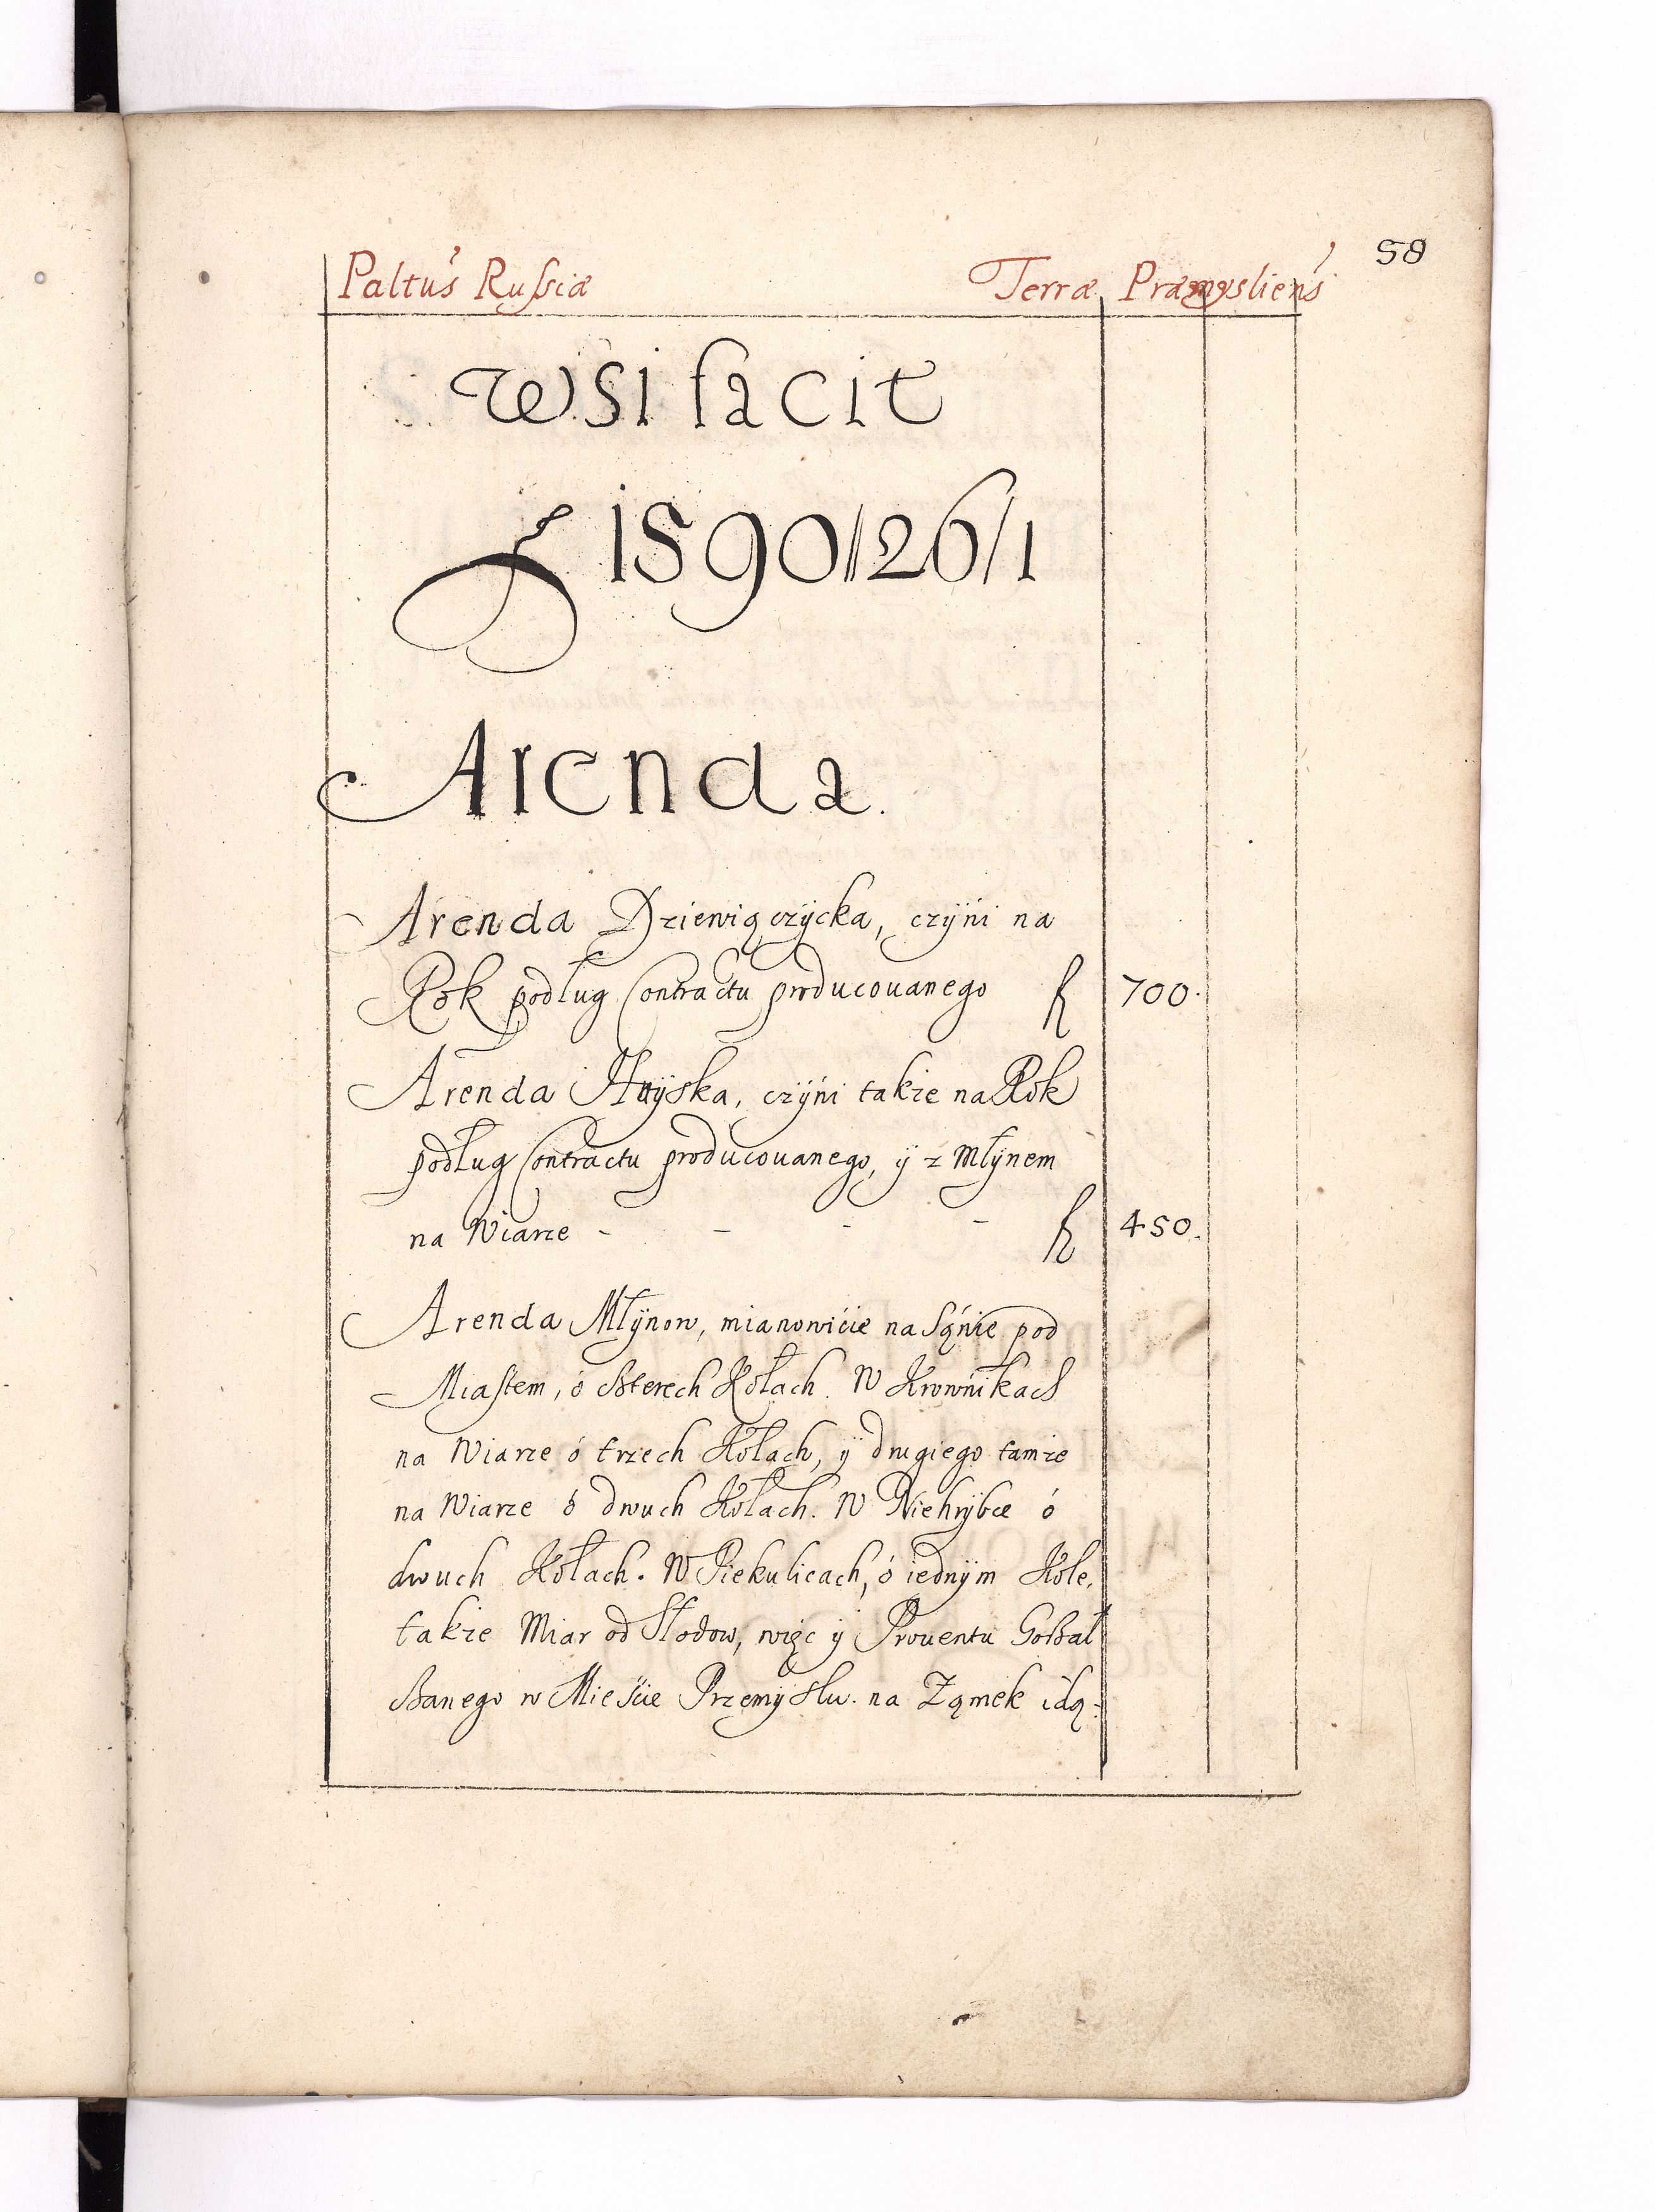 58
Paltus Russiæ Terræ Præmysliens
wsi facit
fl 1590//26/1
Arenda.
Arenda Dziewięczÿcka, czÿni na
Rok podług Contractu producowanego fl 700.
Arenda Huÿska, czÿńi takze na Rok
podług Contractu producowanego, ÿ z Młÿnem
na Wiarze - - - - fl 450.
Arenda Młÿnow, mianowićie na Sąńie pod
Miastem, ó czterech Kołach. W Krowńikach
na Wiarze ó trzech Kołach, ÿ drugiego tamze
na Wiarze ó dwuch Kołach. W Niehrÿbce ó
dwuch Kołach. W Piekulicach, ó iednÿm Kole,
takze Miar od Słodow, więc ÿ Prouentu Goßał
ßanego w Mieśćie Przemÿślu. na Zamek idą: